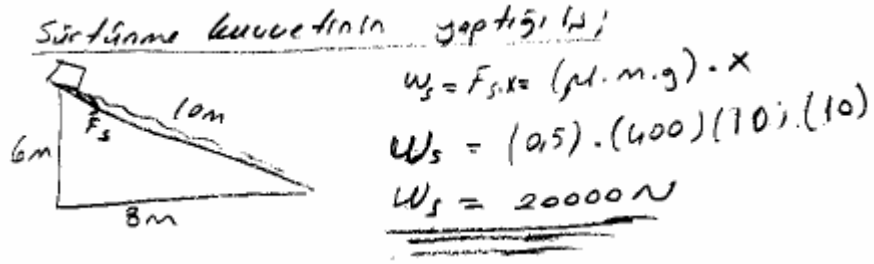 Sürtünme kuvvetinin yaptığı iş;
10m
Fs
6m
8m
Ws = Fs.x = (μ.m.g).x
Ws = (0,5).(400)(10).(10)
Ws = 20000N